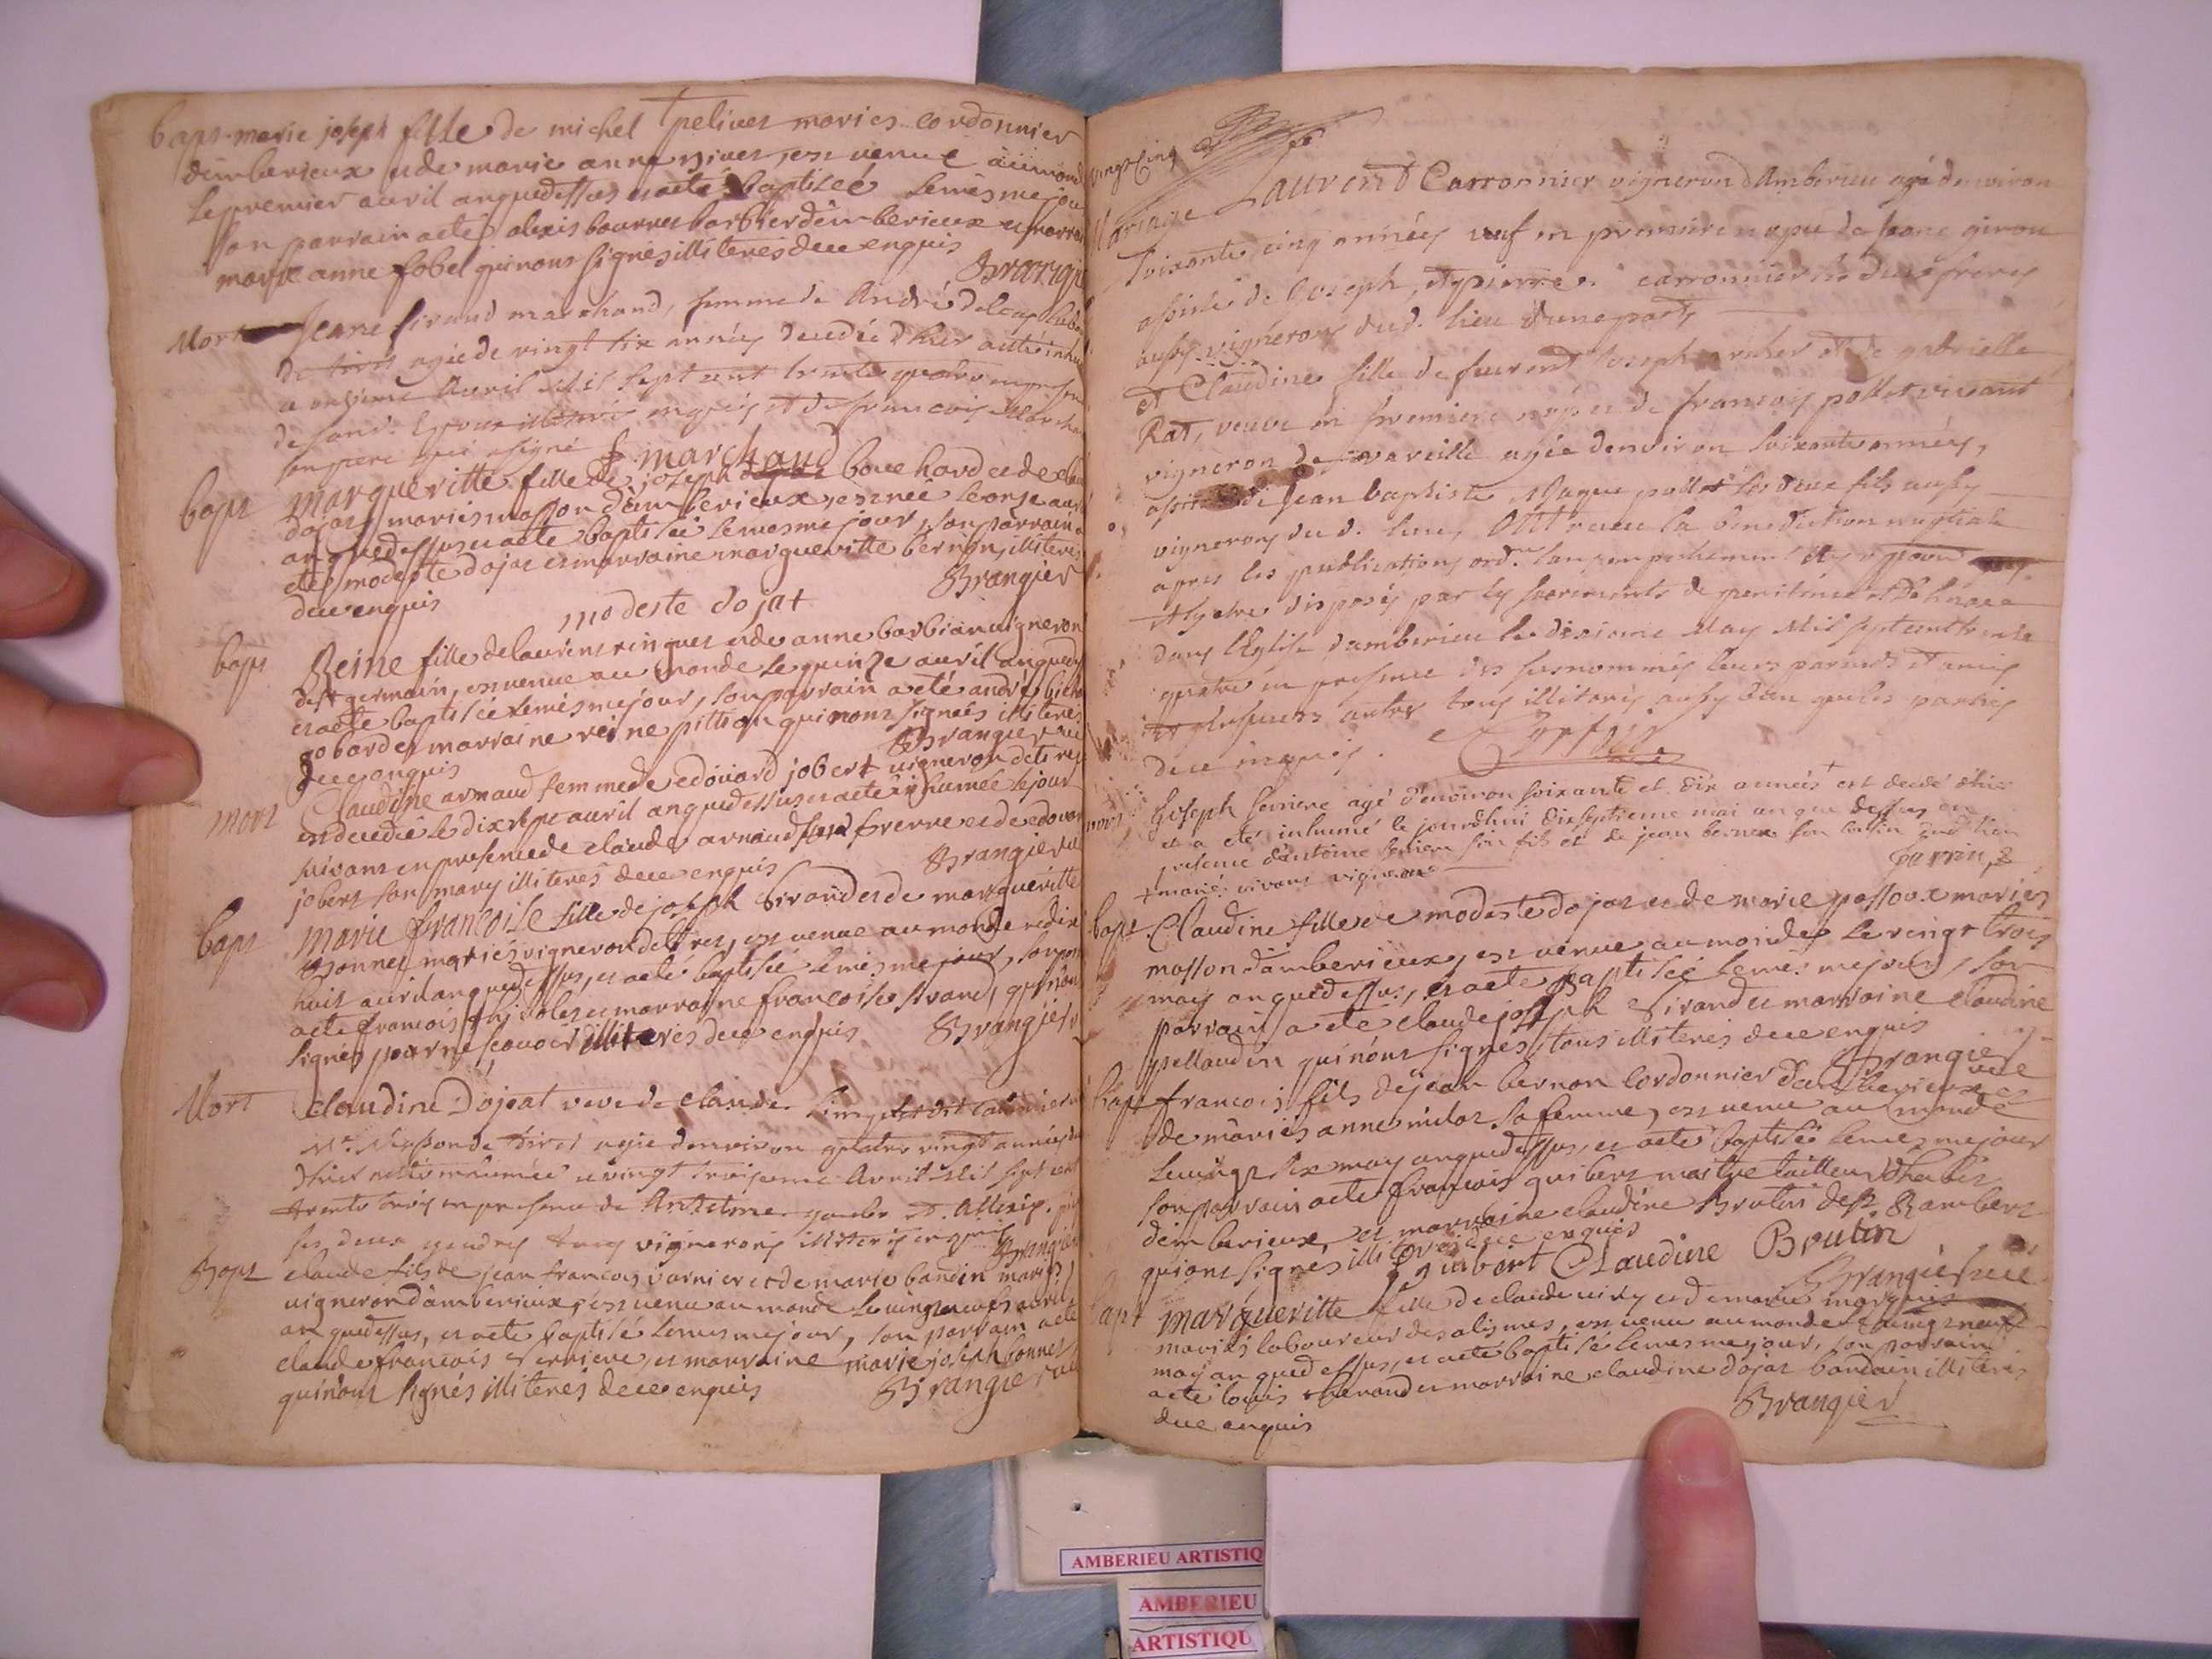 bapt. marie joseph fille de michel pelivet mariés cordonnier
damberieux et de marie anne nivet, est venue au mond
le premier avril an que dessus et a eté baptiseé le mesme jou
son parrain a eté alexis bourret d'amberieux et marrai
marie anne fobel qui n'ont signés illiterés de ce enquis
Brangier
Mort Jeane Sirand marchand, femme de André
de tiret agée de vingt six années decedée d'hier a été inhu
onzieme Avril Mil sept cent trente quatre en presen
enquis et de francois Marchan
son pere qui a signé
f marchand
bapt margueritte fille de joseph bouchard et de clau
dojat mariés masson d'amberieux, est neé le onze avri
an que dessus et a eté baptiseé le mesme jour, son parrain a
eté modeste dojat et marraine margueritte bernon, illiteré
de ce enquis Brangier
modeste dojat
bapt Reine fille de laurens ringuet et de anne barbian vigneron
de st germain, est venue au monde le quinze avril an que d
et a eté baptisée le mésme jour, son parrain a eté andré
gobard et marraine reine pittion qui n'ont signés illiterés
de ce enquis Brangier
mort Claudine arnaud femme de edoüard jobert vigneron de tiret
est decedeé le dix sept avril an que dessus et a eté inhumée le jour
suivant en presence de claude arnaud son frerre et de edouar
jobert son mary illiterés de ce enquis Brangier
bapt marie francoise fille de joseph Sirand et de margueritte
Bonnet mariés vigneron de tiret, est venue au monde le dix
huit avril an que dessus, et a eté baptisée le mesme jour, son par
a eté francois et marraine francoise Sirand, qui n'on
signés pour ne scavoir illiterés de ce enquis Brangier
Mort Claudine Dojeat veve de claude
Me Masson de tiret agée d'environ quatre vingt années
d'hier a été inhumée le vingt troisieme Avril Mil sept cent
trente en presence de Anthelme et Alexis
ses deux gendres tous vignerons illiterés enquis Brangier
Bapt claude fils de jean francois varnier et de marie bandin mariés
vigneron d'amberieux, est venu au monde le vingt neuf avril
an que dessus, et a eté baptisé le mesme jour, son parrain a eté
claude francois Serriere, et marraine marie joseph bonnet
qui n'ont signés illiterés de ce enquis Brangier
vingt cinq
Mariage Laurent Carronnier vigneron d'Amberieu agé d'environ
soixante cinq années veuf en premiere nopce de Jeane giron
assisté de Joseph, et pierre carronnier ses deux freres
aussy vignerons dud. lieu d'une part
et Claudine fille de feu Joseph archer et de gabrielle
Rat, veuve en premiere nopce de francois pollet vivant
vigneron de vareille agée d'environ soixante années,
assistée de Jean baptiste pollet ses deux fils aussy
vignerons dud. lieu, Ont receu la benediction nuptiale
apres les publications ord. sans empechement
et s'etre disposés par les sacrements de penitence et
dans l'Eglise d'amberieu le dixieme May Mil sept cent trente
quatre en presence des susnommés leurs parents et amis
et plusieurs autres tous illiterés aussy bien que les parties
de ce enquis.
mort Joseph Serriere agé d'environ soixante et dix années + est decedé d'hier
et a eté inhumé le jourdhui dixseptieme mai an que dessus en
presence d'antoine Serriere son fils et de jean bernex son cousin
+ marié vivant vigneron parrin
bapt Claudine fille de modeste dojat et de marie passoux mariés
masson d'amberieux, est venue au monde le vingt trois
may an que dessus, et a eté baptiseé le mesme jour, son
parrain a eté claude joseph Sirand et marraine claudine
pellaudin qui n'ont signés tous illiterés de ce enquis
Brangier
bapt francois fils de jean bernon cordonnier d'amberieux et
de mariés anne milat sa femme, est venu au monde
le vingt six may an que dessus, et a eté baptisé le mesme jour
son parrain a eté francois guibert maitre tailleur d'habit
d'amberieux, et marraine claudine Brutin de st Rambert
qui ont signés illiterés de ce enquis
f guibert Claudine Brutin
Brangier
bapt margueritte fille de claude viry et de marie marquis
mariés laboureur des alismes, est venue au monde le vingt neuf
may an que dessus, et a eté baptisé le mesme jour, son parrain
a eté louis therand et marraine claudine dojat bandain illiterés
de ce enquis Brangier
AMBERIEU ARTISTIQ
AMBERIEU
ARTISTIQU